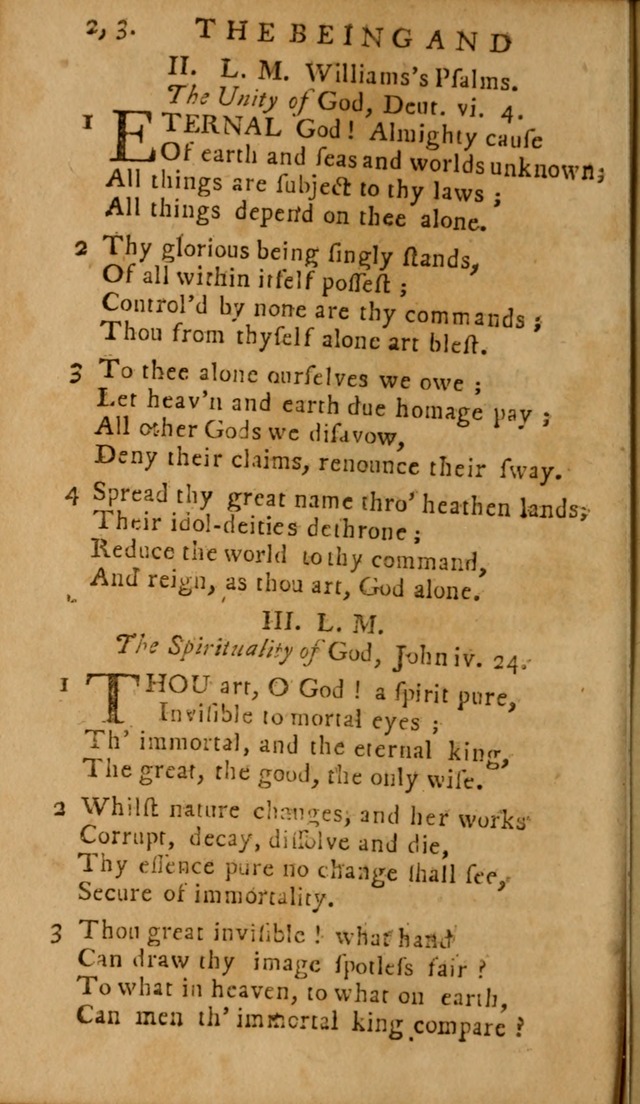 2, 3. THE BEING AND
II. L. M. Williams's Pſalms.
The Unity of God, Deut. vi. 4.
1 ETERNAL God! Almighty cauſe
Of earth and ſeas and worlds unknown;
All things are ſubject to thy laws;
All things depend on thee alone.
2 Thy glorious being ſingly ſtands,
Of all within itſelf poſſeſt;
Control'd by none are thy commands;
Thou from thyſelf alone art bleſt.
3 To thee alone ourſelves we owe;
Let heav'n and earth due homage pay;
All other Gods we diſavow,
Deny their claims, renounce their ſway.
4 Spread thy great name thro' heathen lands;
Their idol-deities dethrone;
Reduce the world to thy command,
And reign, as thou art, God alone.
III. L. M.
The Spirituality of God, John iv. 24.
1 THOU art, O God! a ſpirit pure,
Inviſible to mortal eyes;
Th' immortal, and the eternal king,
The great, the good, the only wiſe.
2 Whilſt nature changes, and her works
Corrupt, decay, diſſolve and die,
Thy eſſence pure no change ſhall ſee,
Secure of immortality.
3 Thou great inviſible! what hand
Can draw thy image ſpotleſs fair?
To what in heaven, to what on earth,
Can men th' immortal king compare?